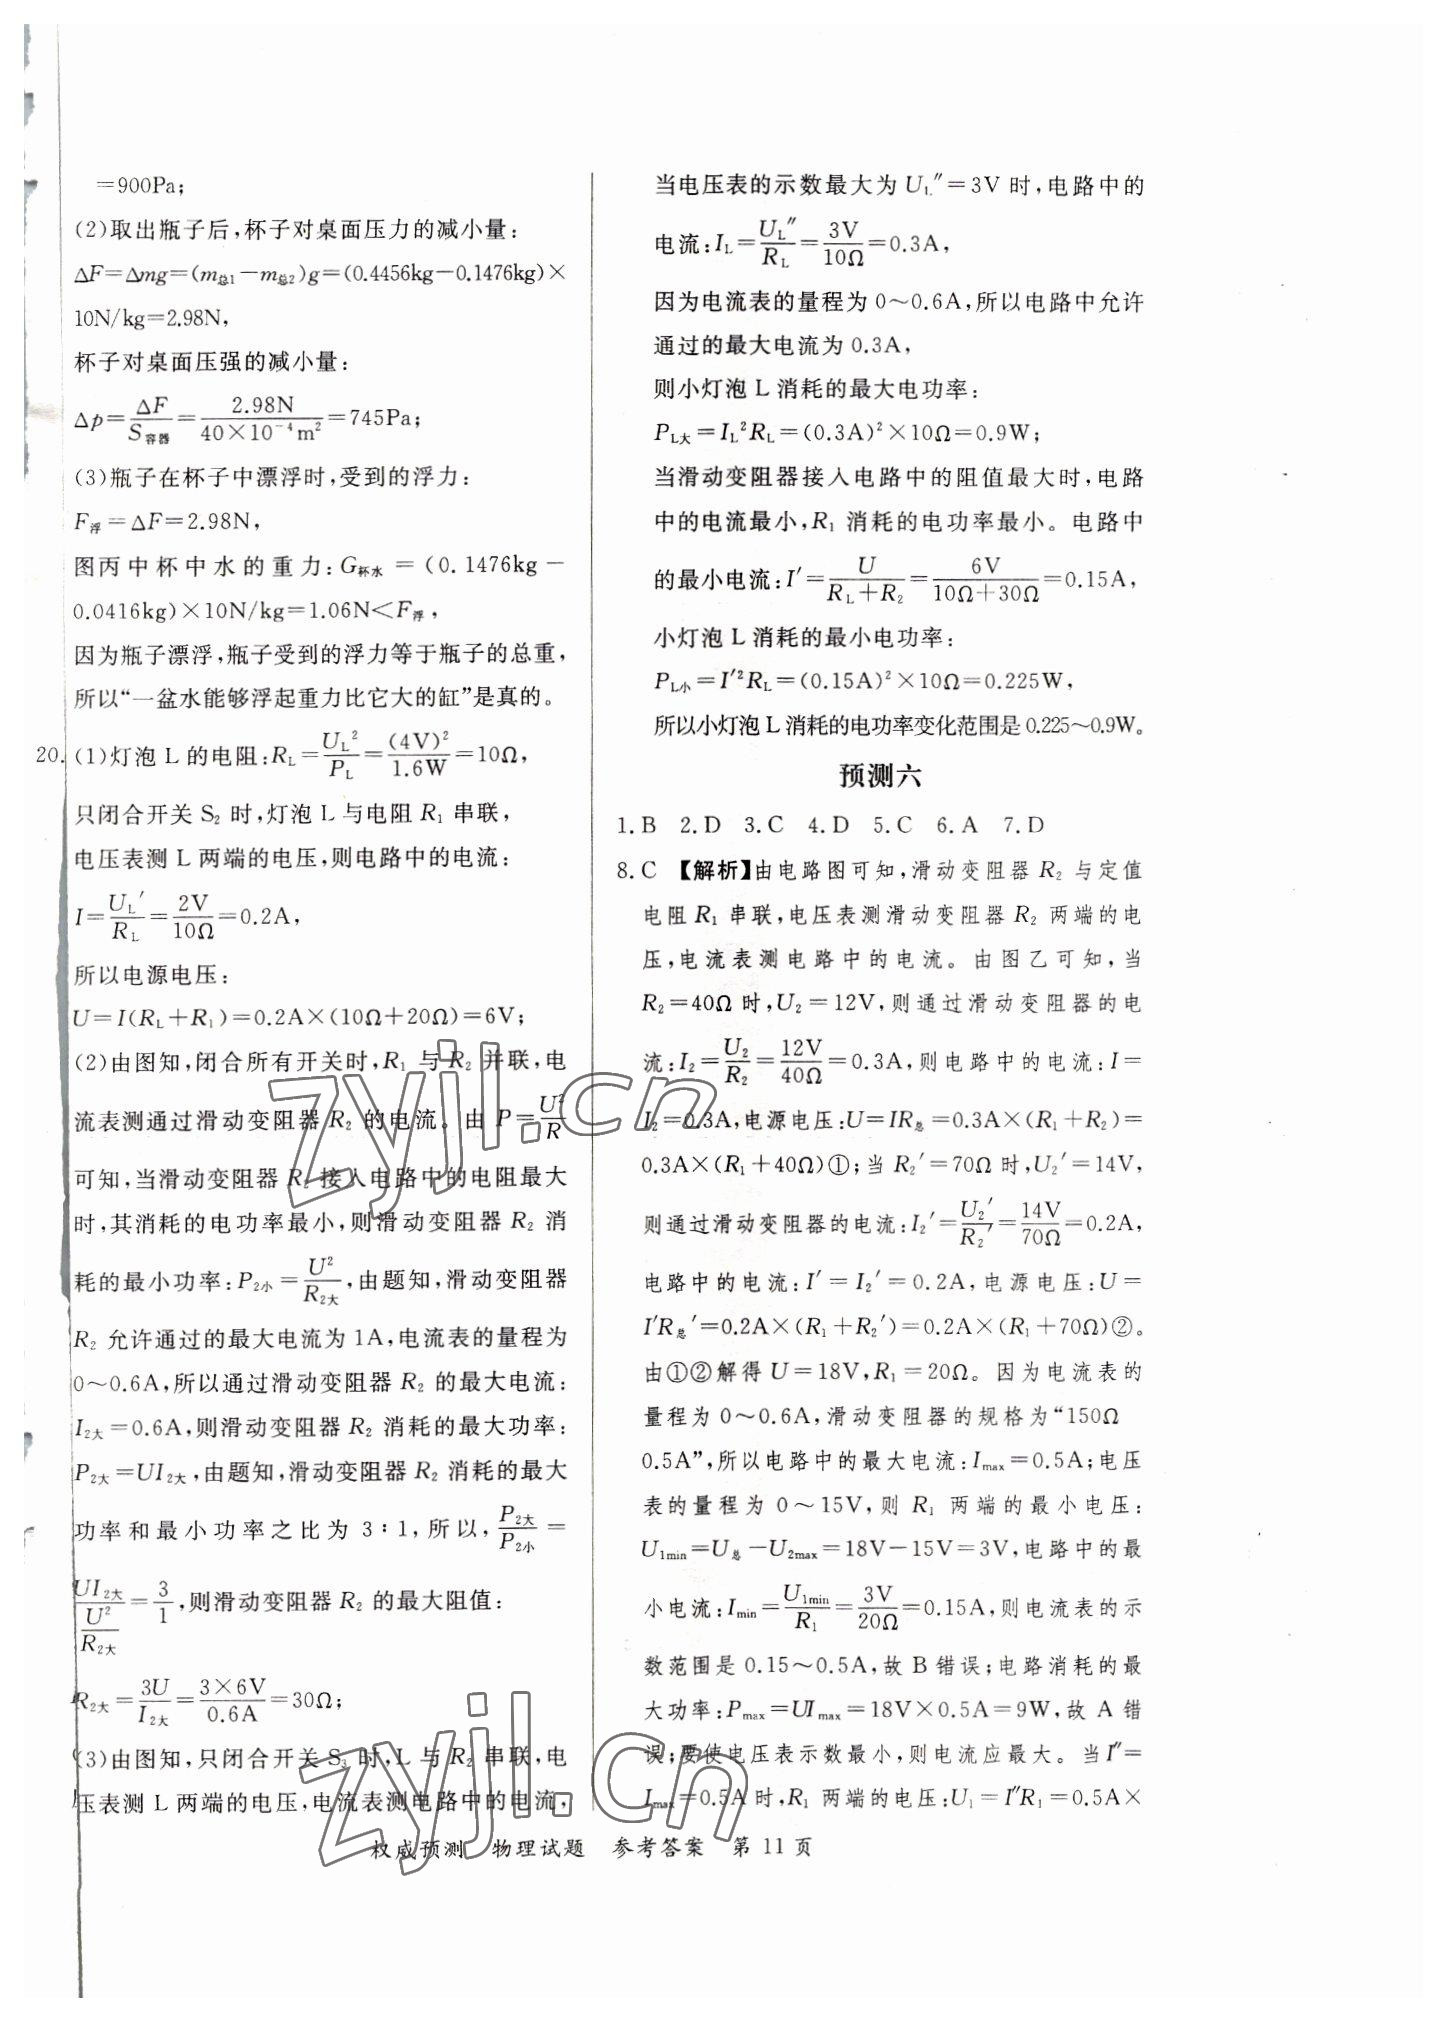 =900Pa;
(2)取出瓶子后,杯子对桌面压力的减小量:
ΔF=Δmg=(m总1-m总2)g=(0.4456kg-0.1476kg)×
10N/kg=2.98N,
杯子对桌面压强的减小量:
Δp=ΔF/S容器=2.98N/(40×10⁻⁴m²)=745Pa;
(3)瓶子在杯子中漂浮时,受到的浮力:
F浮=ΔF=2.98N,
图丙中杯中水的重力:G杯水=(0.1476kg-
0.0416kg)×10N/kg=1.06N<F浮,
因为瓶子漂浮,瓶子受到的浮力等于瓶子的总重,
所以“一盆水能够浮起重力比它大的缸”是真的。
20.(1)灯泡 L 的电阻:R_L=U_L²/P_L=(4V)²/1.6W=10Ω,
只闭合开关 S₂ 时,灯泡 L 与电阻 R₁ 串联,
电压表测 L 两端的电压,则电路中的电流:
I=U_L′/R_L=2V/10Ω=0.2A,
所以电源电压:
U=I(R_L+R₁)=0.2A×(10Ω+20Ω)=6V;
(2)由图知,闭合所有开关时,R₁ 与 R₂ 并联,电
流表测通过滑动变阻器 R₂ 的电流。由 P=U²/R
可知,当滑动变阻器 R₂ 接入电路中的电阻最大
时,其消耗的电功率最小,则滑动变阻器 R₂ 消
耗的最小功率:P₂小=U²/R₂大,由题知,滑动变阻器
R₂ 允许通过的最大电流为 1A,电流表的量程为
0～0.6A,所以通过滑动变阻器 R₂ 的最大电流:
I₂大=0.6A,则滑动变阻器 R₂ 消耗的最大功率:
P₂大=UI₂大,由题知,滑动变阻器 R₂ 消耗的最大
功率和最小功率之比为 3∶1,所以,P₂大/P₂小=
UI₂大/(U²/R₂大)=3/1,则滑动变阻器 R₂ 的最大阻值:
R₂大=3U/I₂大=3×6V/0.6A=30Ω;
(3)由图知,只闭合开关 S₃ 时,L 与 R₂ 串联,电
压表测 L 两端的电压,电流表测电路中的电流,
当电压表的示数最大为 U_L″=3V 时,电路中的
电流:I_L=U_L″/R_L=3V/10Ω=0.3A,
因为电流表的量程为 0～0.6A,所以电路中允许
通过的最大电流为 0.3A,
则小灯泡 L 消耗的最大电功率:
P_L大=I_L²R_L=(0.3A)²×10Ω=0.9W;
当滑动变阻器接入电路中的阻值最大时,电路
中的电流最小,R₁ 消耗的电功率最小。电路中
的最小电流:I′=U/(R_L+R₂)=6V/(10Ω+30Ω)=0.15A,
小灯泡 L 消耗的最小电功率:
P_L小=I′²R_L=(0.15A)²×10Ω=0.225W,
所以小灯泡 L 消耗的电功率变化范围是 0.225～0.9W。
预测六
1.B 2.D 3.C 4.D 5.C 6.A 7.D
8.C 【解析】由电路图可知,滑动变阻器 R₂ 与定值
电阻 R₁ 串联,电压表测滑动变阻器 R₂ 两端的电
压,电流表测电路中的电流。由图乙可知,当
R₂=40Ω 时,U₂=12V,则通过滑动变阻器的电
流:I₂=U₂/R₂=12V/40Ω=0.3A,则电路中的电流:I=
I₂=0.3A,电源电压:U=IR总=0.3A×(R₁+R₂)=
0.3A×(R₁+40Ω)①;当 R₂′=70Ω 时,U₂′=14V,
则通过滑动变阻器的电流:I₂′=U₂′/R₂′=14V/70Ω=0.2A,
电路中的电流:I′=I₂′=0.2A,电源电压:U=
I′R总′=0.2A×(R₁+R₂′)=0.2A×(R₁+70Ω)②。
由①②解得 U=18V,R₁=20Ω。因为电流表的
量程为 0～0.6A,滑动变阻器的规格为“150Ω
0.5A”,所以电路中的最大电流:I_max=0.5A;电压
表的量程为 0～15V,则 R₁ 两端的最小电压:
U₁min=U总-U₂max=18V-15V=3V,电路中的最
小电流:I_min=U₁min/R₁=3V/20Ω=0.15A,则电流表的示
数范围是 0.15～0.5A,故 B 错误;电路消耗的最
大功率:P_max=UI_max=18V×0.5A=9W,故 A 错
误;要使电压表示数最小,则电流应最大。当 I″=
I_max=0.5A 时,R₁ 两端的电压:U₁=I″R₁=0.5A×
权威预测 物理试题 参考答案 第 11 页
zyjl.cn
zyjl.cn